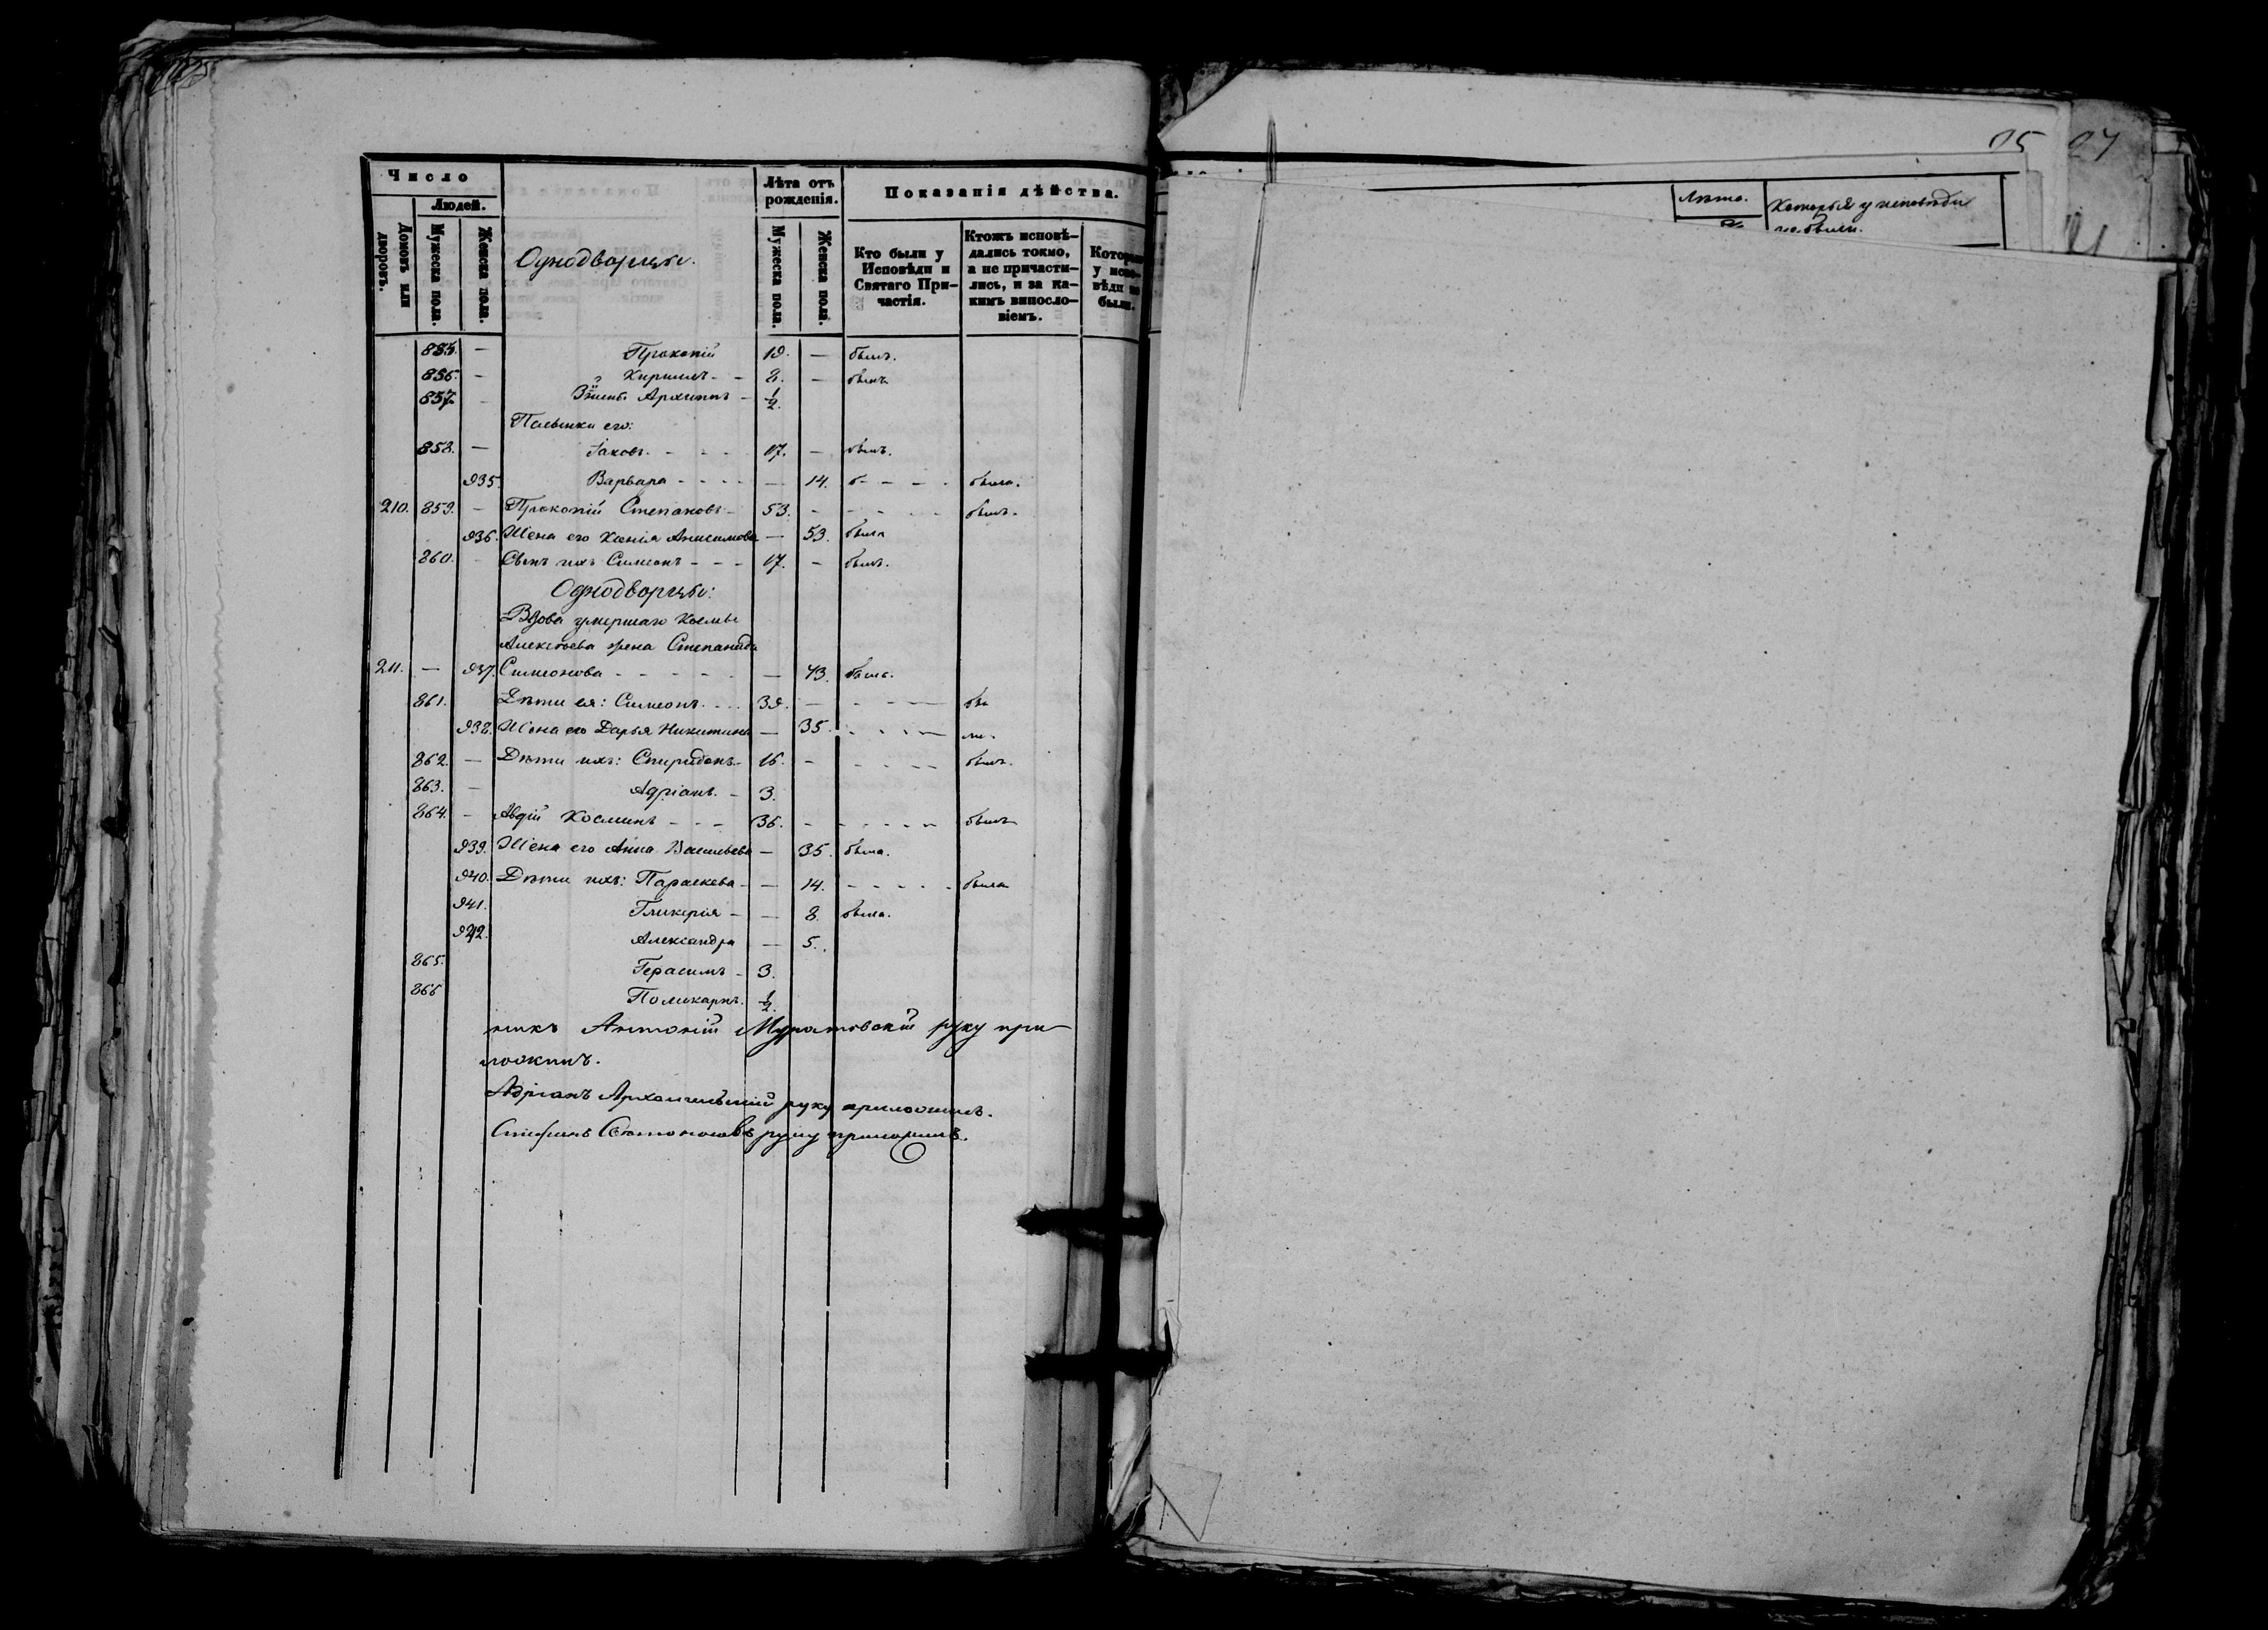 Число
Людей.
Домовъ или дворовъ.
Мужеска пола.
Женска пола.
Однодворцы.
Лѣта отъ рожденія.
Мужеска пола.
Женска пола.
Показанія дѣйства.
Кто были у Исповѣди и Святаго Причастія.
Ктожъ исповѣдались токмо, а не причастились, и за какимъ винословіемъ.
Которые у исповѣди не были.
855. — Прокопій 19. — былъ.
856. — Кирилъ - - 8. — былъ
857. Архиппъ - 1/2.
его:
858. — Іаковъ. - - - - 17. — былъ.
935. Варвара - - - - — 14. б- - - - была.
210. 859. — Прокопій Степановъ - 53. - - - - - былъ.
936. Жена его Ксенія Анисимова — 53. была
860. Сынъ ихъ Симеонъ - - - 17. - былъ.
Однодворцы:
Вдова умершаго Космы
Алексѣева жена Степанида
211. — 937. Симеонова - - - - - - — 73. была.
861. Дѣти ея: Симеонъ. - - - 39. — - - — бы
938. Жена его Дарья Никитина — 35. - - - - — ли.
862. — Дѣти ихъ: Спиридонъ - 16. - - - - - былъ.
863. — Адріанъ. - 3.
864. - Авдій Косминъ - - - 36. - - - - - - былъ
939. Жена его Анна Васильева — 35. была.
940. Дѣти ихъ: Параскева - — 14. - - - - - была
941. Гликерія - — 8. была.
942. Александра — 5.
865. Герасимъ - 3.
866 Поликарпъ. 1/2.
никъ Антоній Муратовскій руку при
ложилъ.
Адріанъ Архангельскій руку приложилъ.
руку приложилъ.
Лѣта.
Которыя у исповѣди
не были.